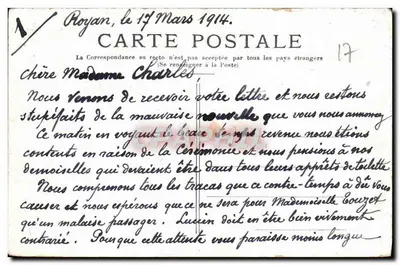 1
Royan, le 17 Mars 1914.
CARTE POSTALE
17
La Correspondance au recto n'est pas acceptée par tous les pays étrangers
(Se renseigner à la Poste)
Chère Madame Charles,
Nous venons de recevoir votre lettre et nous restons
stupéfaits de la mauvaise nouvelle que vous nous annoncez
Ce matin en voyant le beau temps revenu nous étions
contents en raison de la Cérémonie et nous pensions à nos
demoiselles qui devraient être dans tous leurs apprêts de toilette
Nous comprenons tous les tracas que ce contre-temps a dû vous
causer et nous espérons que ce ne sera pour Mademoiselle Touzet
qu'un malaise passager. Lucien doit en être bien vivement
contrarié. Pour que cette attente vous paraisse moins longue